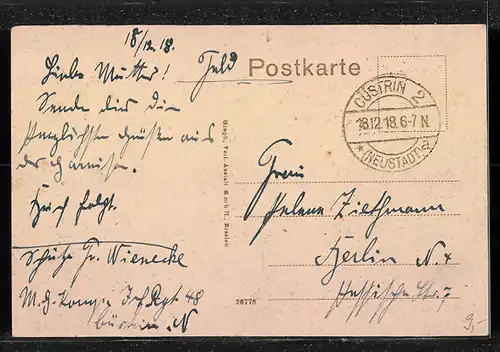 18/12.18.
Liebe Mutter!
Sende dir die
herzlichsten Grüße aus
der Garnison.
Brief folgt.
Schütze Fr. Wienecke
M.G. Komp. Inf. Rgt 48
Cüstrin. N
Feld Postkarte
CÜSTRIN 2
18.12.18.6-7 N.
* (NEUSTADT) a
Graph. Verl.-Anstalt G m b H., Breslau
20775
Frau
Helene Ziethmann
Berlin N. 4
Hessische Str. 7
9,-